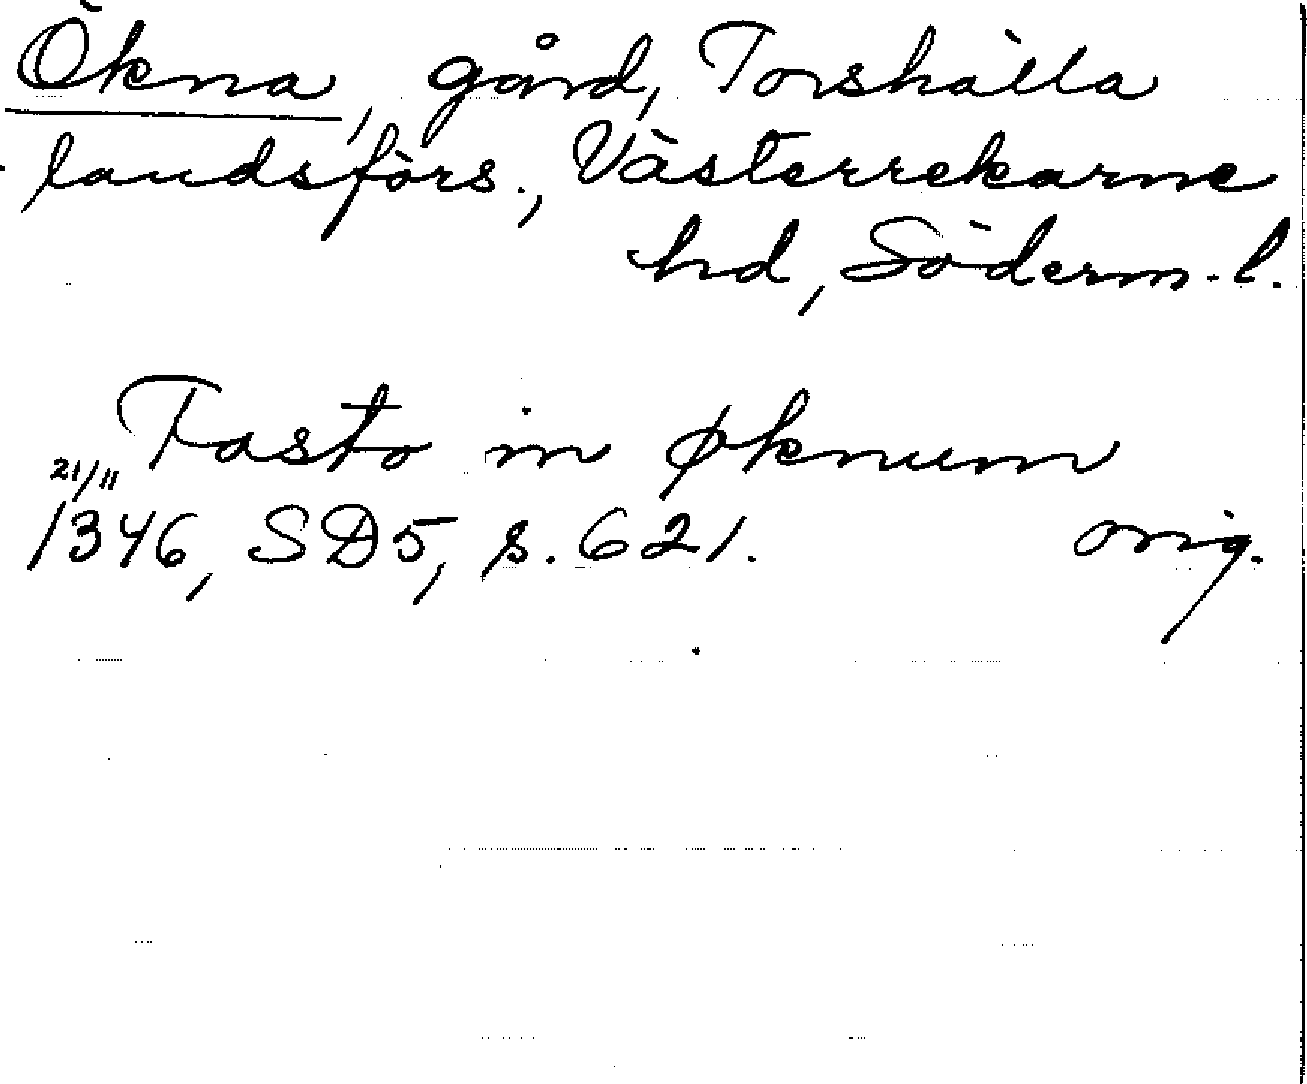 Ökna, gård, Torshälla
landsförs., Västerrekarne
hd, Söderm. l.
Fasto in øknum
21/11
1346, SD5, s. 621. orig.